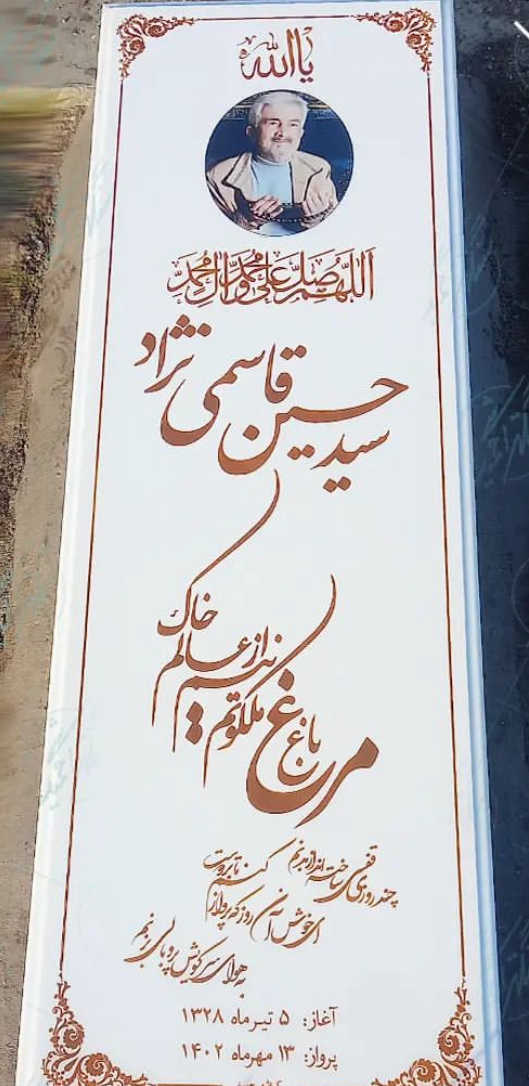 یا الله
اللهم صل علی محمد و آل محمد
سید حسین قاسمی نژاد
مرغ باغ ملکوتم
نیم از عالم خاک
چند روزی قفسی ساخته اند از بدنم
ای خوش آن روز که پرواز کنم تا بر دوست
به هوای سر کویش پر و بالی بزنم
آغاز: ۵ تیر ماه ۱۳۲۸
پرواز: ۱۳ مهر ماه ۱۴۰۲